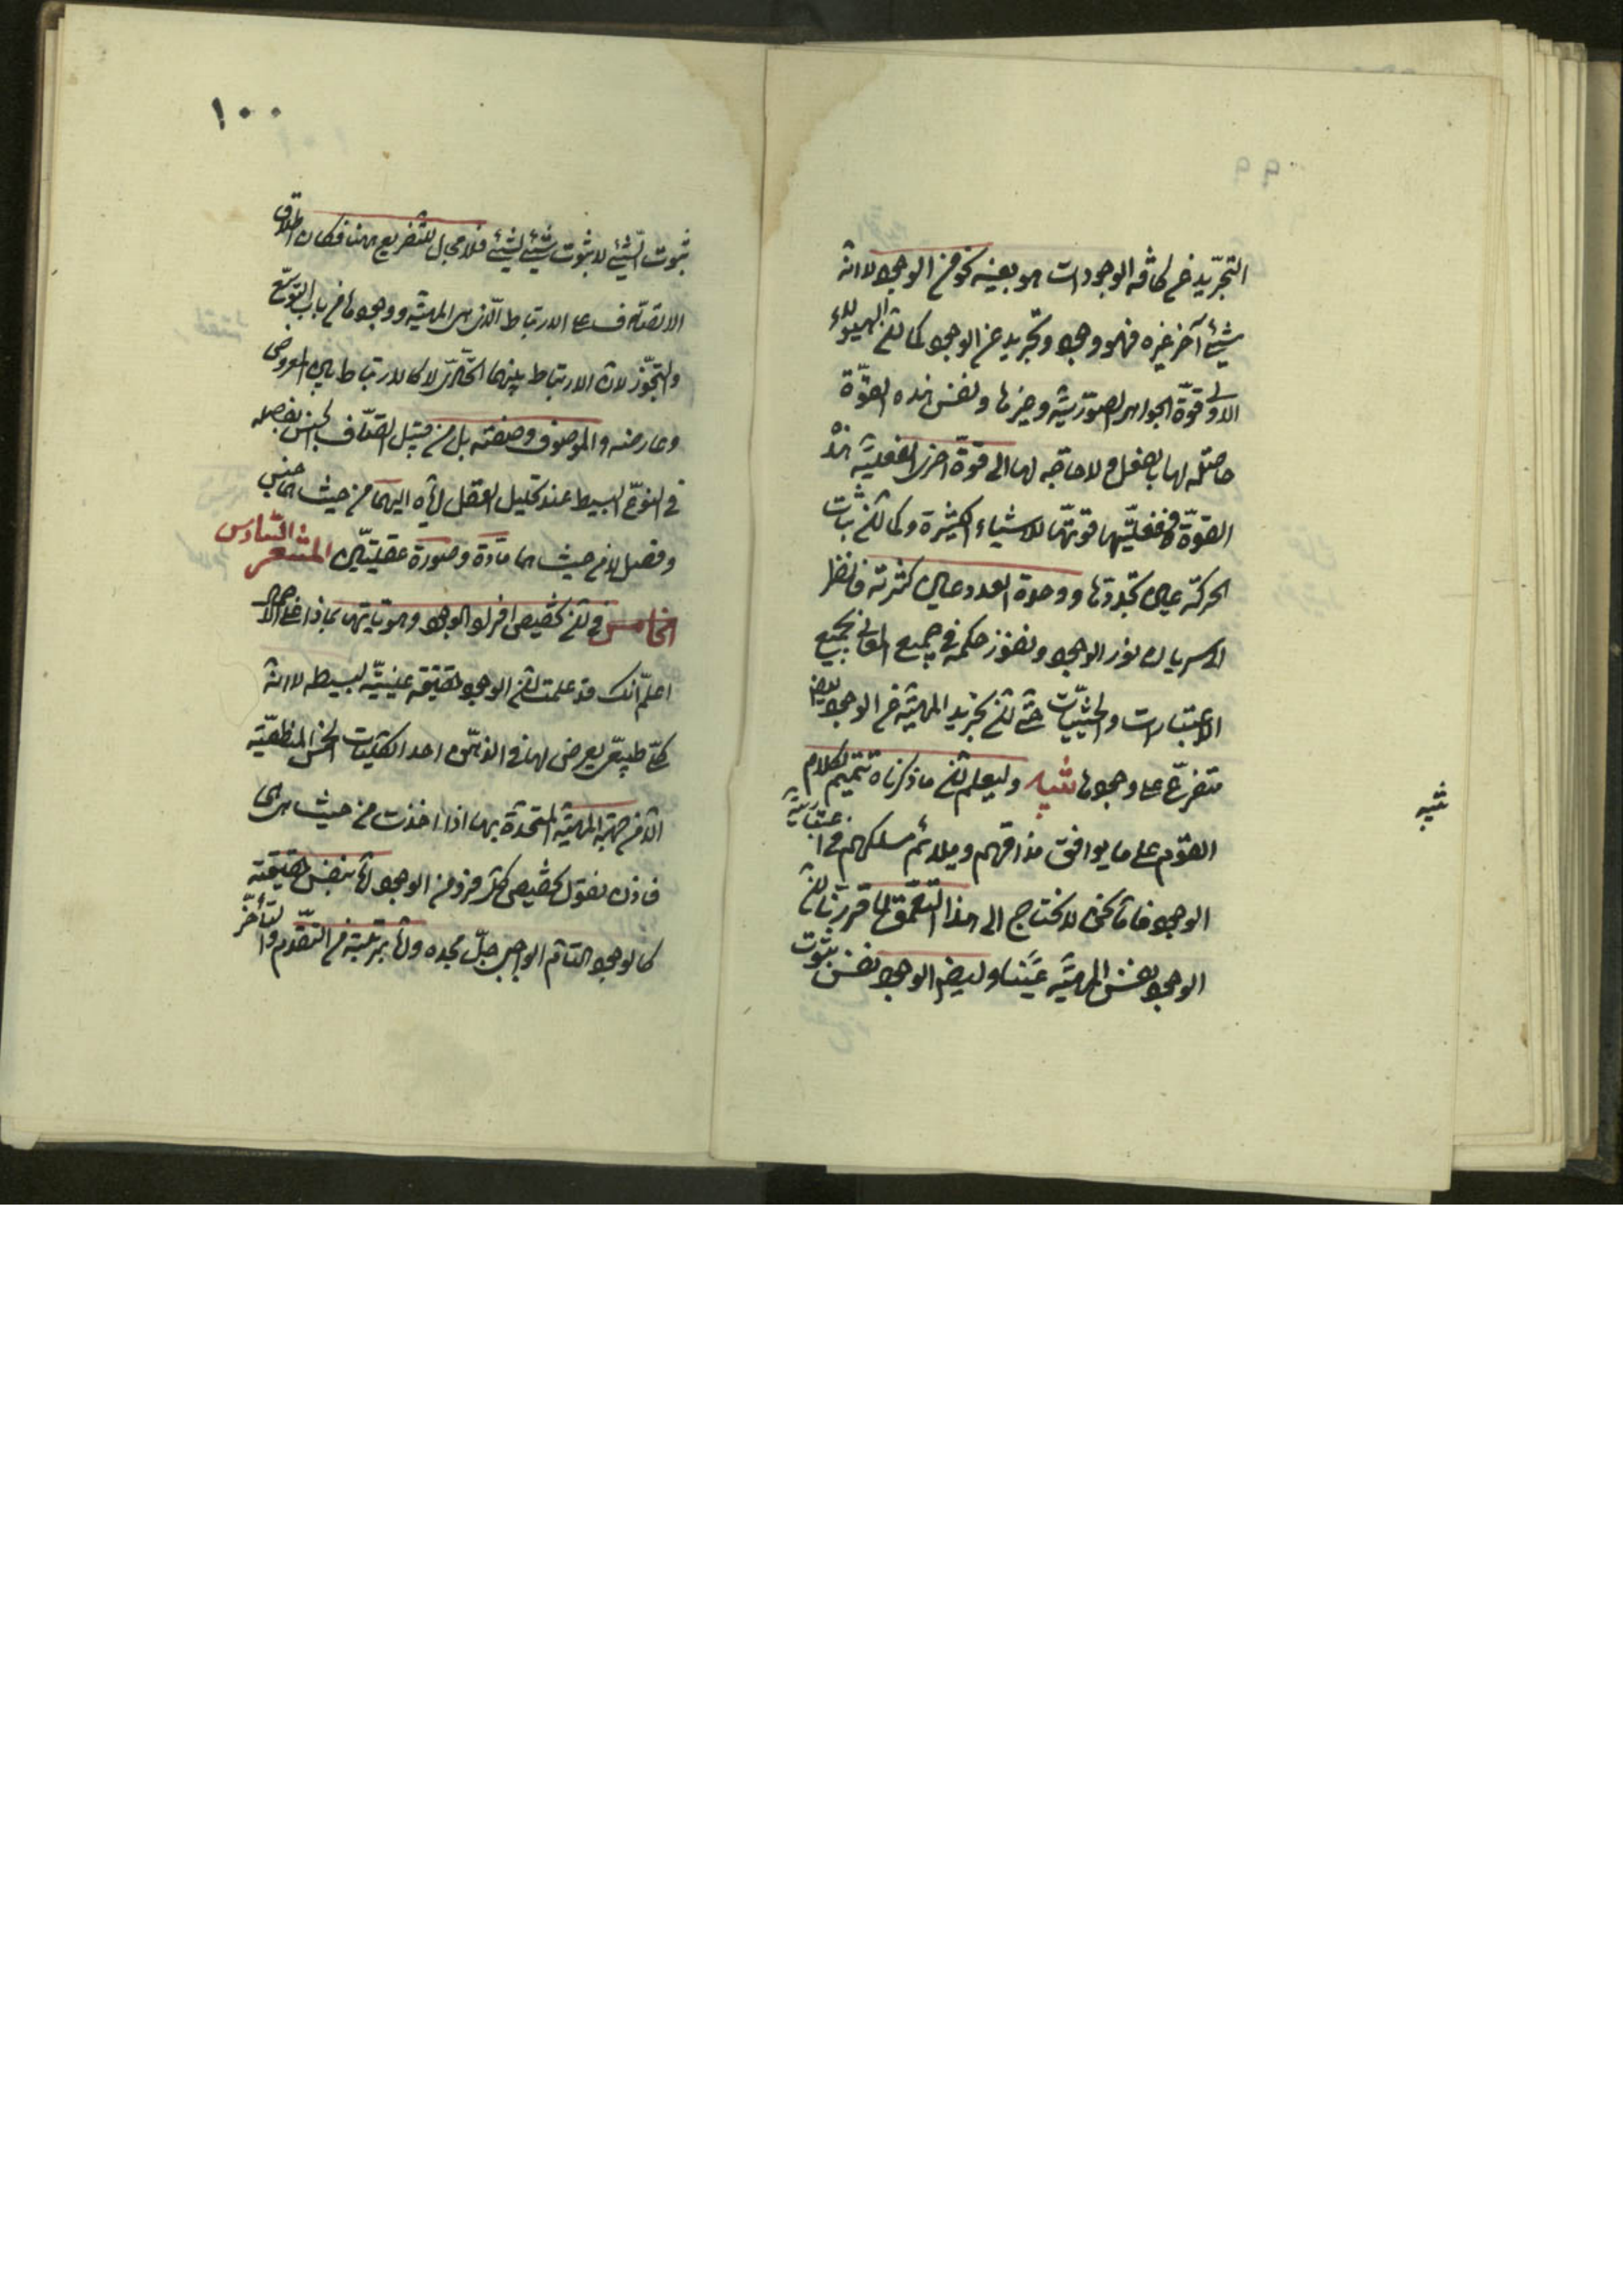 التجريد عن كافة الوجودات هو بعينه نحو من الوجود لا انه
شيئ آخر غيره فهو وجود وتجريد عن الوجود كما ان الهيولى
الاولى قوة الجواهر الصورية وغيرها ونفس هذه القوة
حاصلة لها بالفعل ولا حاجة لها الى قوة اخرى لفعلية هذه
القوة ففعليتها قوتها للاشياء الكثيرة وكما ان ثبات
الحركة عين تجددها ووحدة العدد عين كثرته فانظر
الى سريان نور الوجود ونفوذ حكمه في جميع المعاني بجميع
الاعتبارات والحيثيات حتى ان تجريد المهية عن الوجود ايضا
متفرع على وجودها تنبيه وليعلم ان ما ذكرناه تتميم لكلام
القوم على ما يوافق مذاقهم ويلائم مسلكهم في اعتبارية
الوجود فاما نحن لا نحتاج الى هذا التعمق لما قررنا ان
الوجود نفس المهية عينا وايضا الوجود نفس ثبوت
تنبيه
١٠٠
ثبوت الشيئ لا ثبوت شيئ لشيئ فلا مجال للتفريع ههنا فكان اطلاق
الاتصاف على الارتباط الذي بين المهية ووجودها من باب التوسع
والتجوز لان الارتباط بينهما اتحادي لا كالارتباط بين المعروض
وعارضه والموصوف وصفته بل من قبيل اتصاف الجنس بفصله
في النوع البسيط عند تحليل العقل اياه اليهما من حيث هما جنس
وفصل لا من حيث هما مادة وصورة عقليتين المشعر السادس
الخامس في ان تخصيص افراد الوجود وهوياتها بماذا على الاجمال
اعلم انك قد علمت ان الوجود حقيقة عينية بسيطة لا انه
كلي طبيعي يعرض لها في الذهن احد الكليات الخمس المنطقية
الا من جهة المهية المتحدة بها اذا اخذت من حيث هي هي
فاذن نقول تخصيص كل فرد من الوجود اما بنفس حقيقته
كالوجود التام الواجبي جل مجده واما بمرتبة من التقدم والتأخر